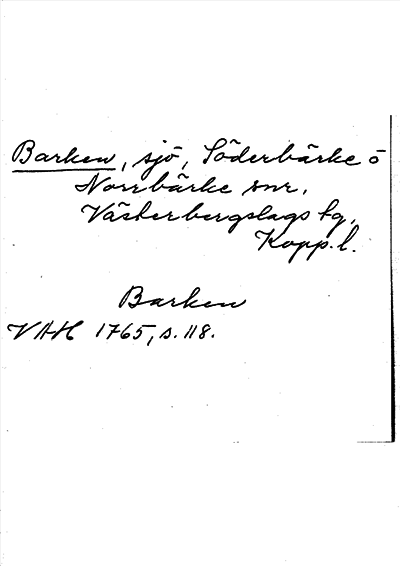 Barken, sjö, Söderbärke o
Norrbärke snr,
Västerbergslags tg,
Kopp. l.
Barken
VAH 1765, s. 118.